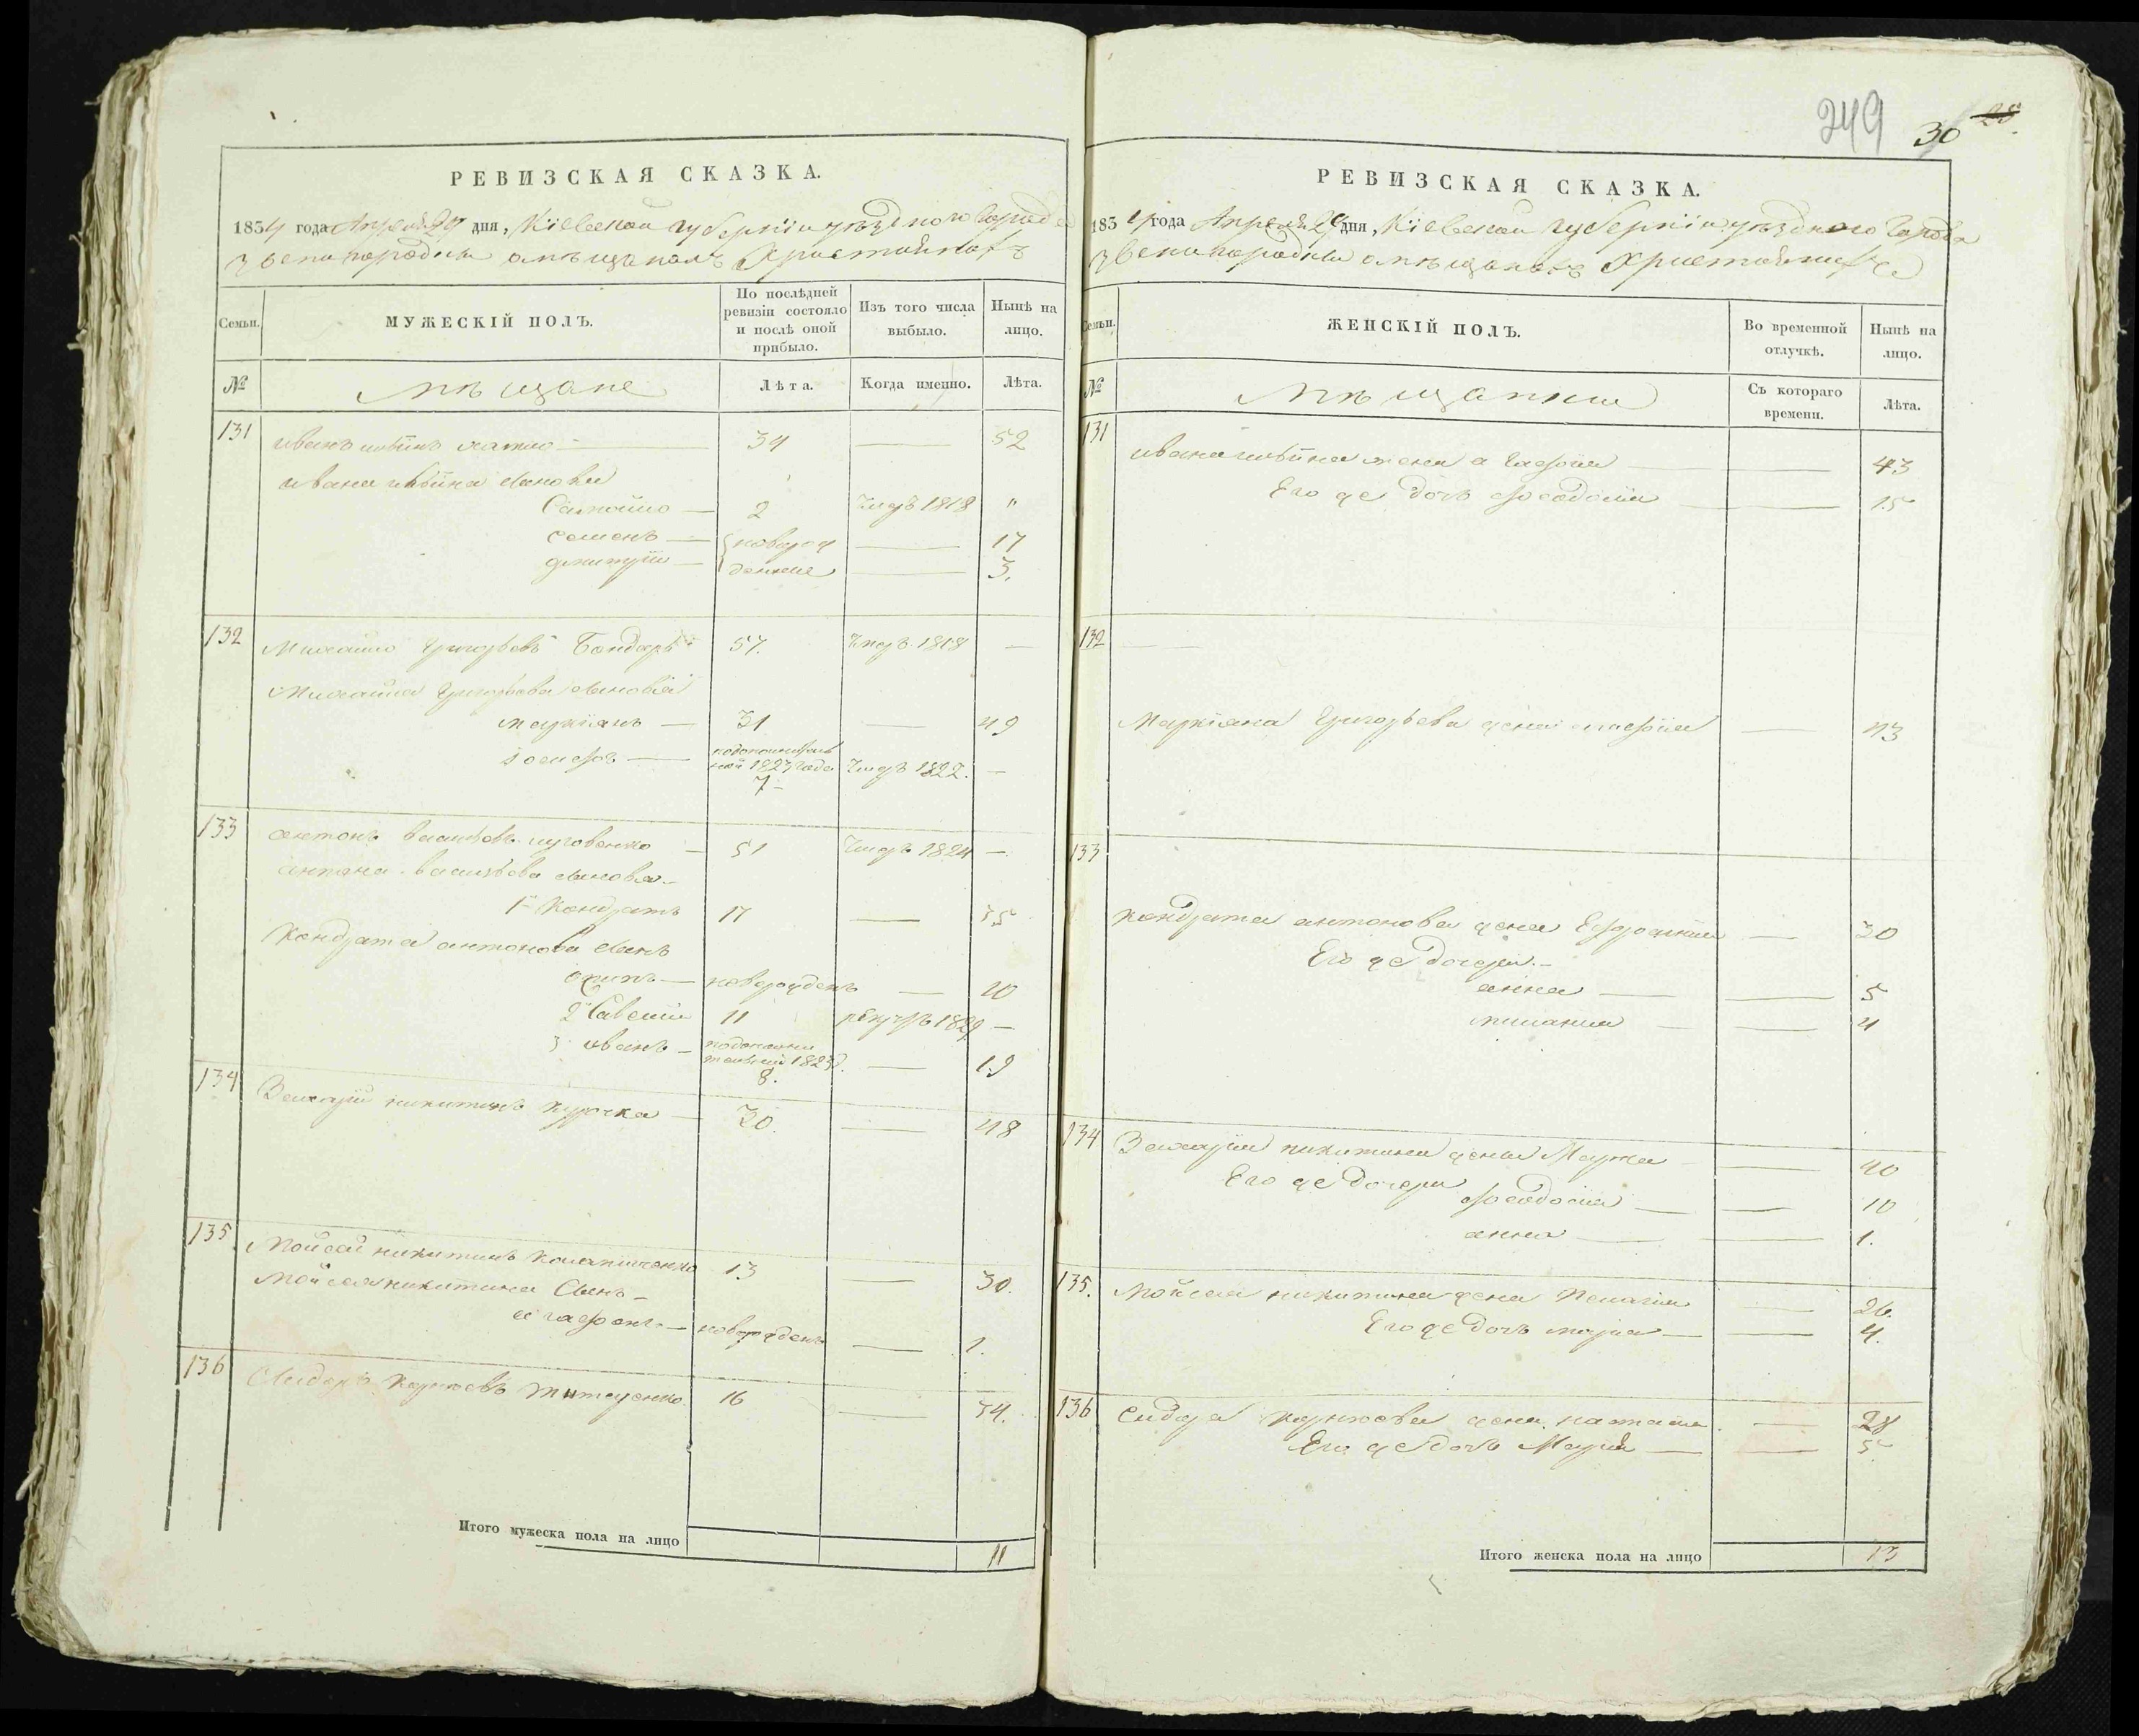 249
30 28.
РЕВИЗСКАЯ СКАЗКА.
1834 года Апреля 29 дня, Кіевской губерніи уѣзднаго города
Звенигородки о мѣщанахъ Христіянахъ
Семьи. МУЖЕСКІЙ ПОЛЪ. По послѣдней ревизіи состояло и послѣ оной прибыло. Изъ того числа выбыло. Нынѣ на лицо.
№ Мѣщане Лѣта. Когда именно. Лѣта.
131 Иванъ 34 — 52
Ивана сыновья
Самойло — 2 умръ 1818 "
Семенъ — новорож — 17
Дмитрій — денные — 3.
132 Михайло Григорьевъ Бондарь 57. умръ 1818 —
Михайла Григорьева сыновья
Маркіянъ — 31 — 49
Іосифъ — 1823 года 7 умръ 1822. —
133 Антонъ Васильевъ — 51 умръ 1824 —
Антона Васильева сыновья —
1й Кондратъ 17 — 35
Кондрата Антонова сынъ
Осипъ — новорожденъ — 10
2й Савелій 11 рекрутъ 1829 —
3 Иванъ — 1823 8. — 19
134 Захарій Никитинъ Курочка — 30. — 48
135 Мойсей Никитинъ 13 — 30.
Мойсея Никитина сынъ —
Агафонъ — новорожденъ — 1.
136 Сидоръ 16 — 34.
Итого мужеска пола на лицо 11
РЕВИЗСКАЯ СКАЗКА.
1834 года Апреля 29 дня, Кіевской губерніи уѣзднаго города
Звенигородки о мѣщанахъ Христіянахъ
Семьи. ЖЕНСКІЙ ПОЛЪ. Во временной отлучкѣ. Нынѣ на лицо.
№ Мѣщанки Съ котораго времени. Лѣта.
131 Ивана жена Агафія — 43
Его же дочь Феодосія — 15
132 —
Маркіяна Григорьева жена — 43
133
Кондрата Антонова жена Ефросинія — 30
Его же дочери —
Анна — 5
— 4
134 Захарія Никитина жена Марѳа — 40
Его же дочери
Феодосія — 10
Анна — 1.
135. Мойсея Никитина жена Пелагія — 26.
Его же дочь Марія — 4.
136 Сидора жена Наталія — 28
Его же дочь Марія — 5
Итого женска пола на лицо 13